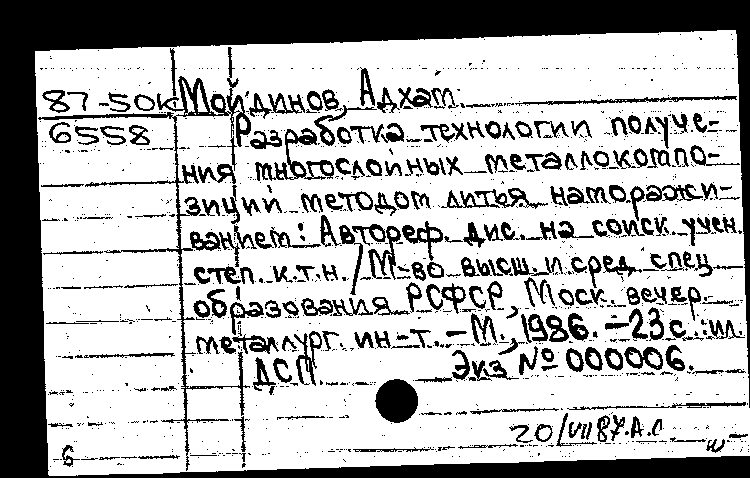 87-50К Мойдинов, Адхат.
6558 Разработка технологии получе-
ния многослойных металлокомпо-
зиций методом литья наморажи-
ванием: Автореф. дис. на соиск. учен.
степ. к.т.н. / М-во высш. и сред. спец.
образования РСФСР, Моск. вечер.
металлург. ин-т. – М., 1986. – 23 с.: ил.
ДСП. Экз № 000006.
20/VII 87. А.С.
6